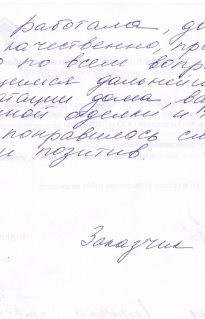 работала, до
качественно, пр
о по всем вопр
щимся дальней
атации дома, ва
ной отделки и
понравилась сл
и позитив.
Заказчик